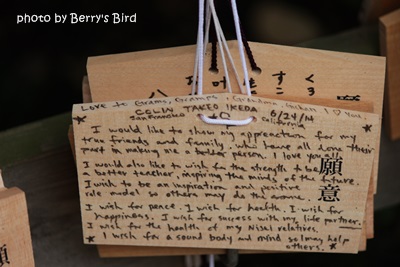 photo by Berry's Bird
Love to Grams, Gramps, Grandma,
I ♡ You
COLIN TAKEO IKEDA 6/24/14
San Francisco California
I would like to show my appreciation for my
true friends and family, who have all done their
part in making me a better person. I love you all
I would also like to wish for the strength to be
a better teacher, inspiring the minds of the future.
I wish to be an inspiration and positive
role model so others may do the same.
I wish for peace. I wish for health. I wish for
happiness. I wish for success with my life partner.
I wish for the health of my Nisei relatives.
I wish for a sound body and mind so I may help
others.
願意
願